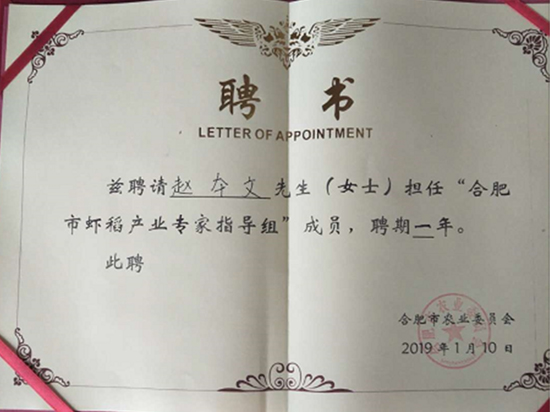 聘书
LETTER OF APPOINTMENT
兹聘请赵本文先生（女士）担任“合肥
市虾稻产业专家指导组”成员，聘期一年。
此聘
合肥市农业委员会
2019年1月10日